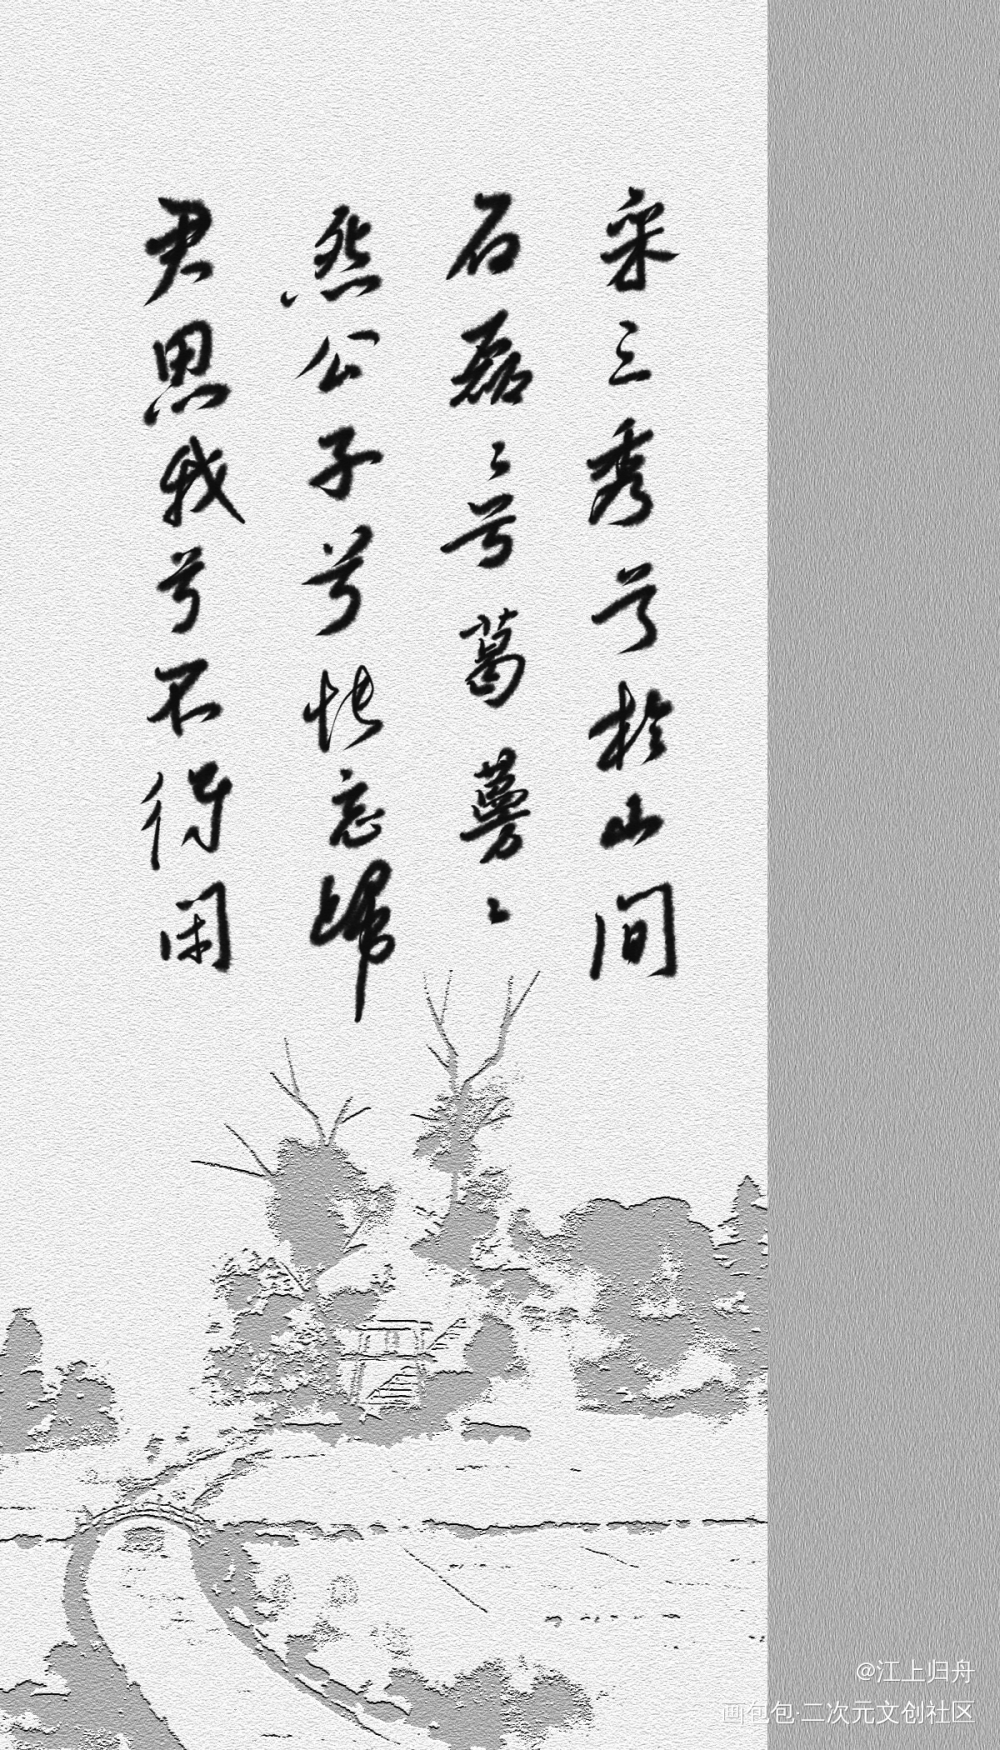 采三秀兮於山間
石磊〻兮葛蔓〻
怨公子兮怅忘歸
君思我兮不得闲
@江上归舟
画包包·二次元文创社区